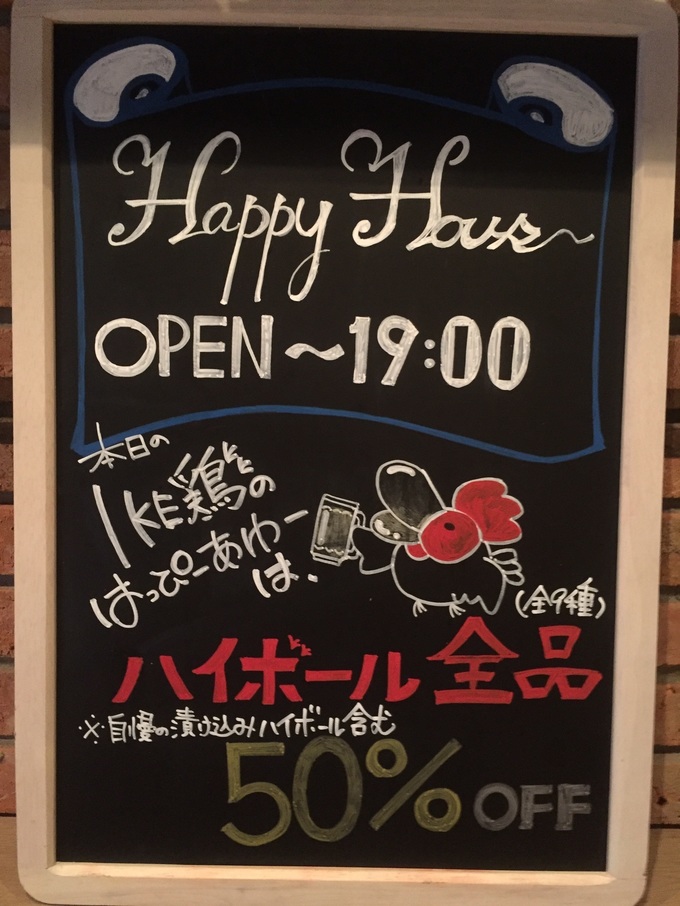 Happy Hour
OPEN～19:00
本日の
IKE鶏の
はっぴーあゎー
は、
(全9種)
ハイボール全品
※自慢の漬け込みハイボール含む
50% OFF